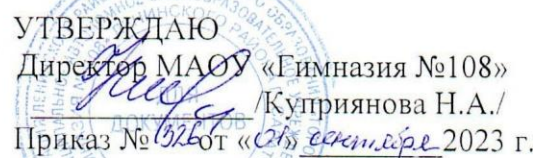 УТВЕРЖДАЮ
Директор МАОУ «Гимназия №108»
/Куприянова Н.А./
Приказ № 326 от «01» сентября 2023 г.
ДОКУМЕНТОВ